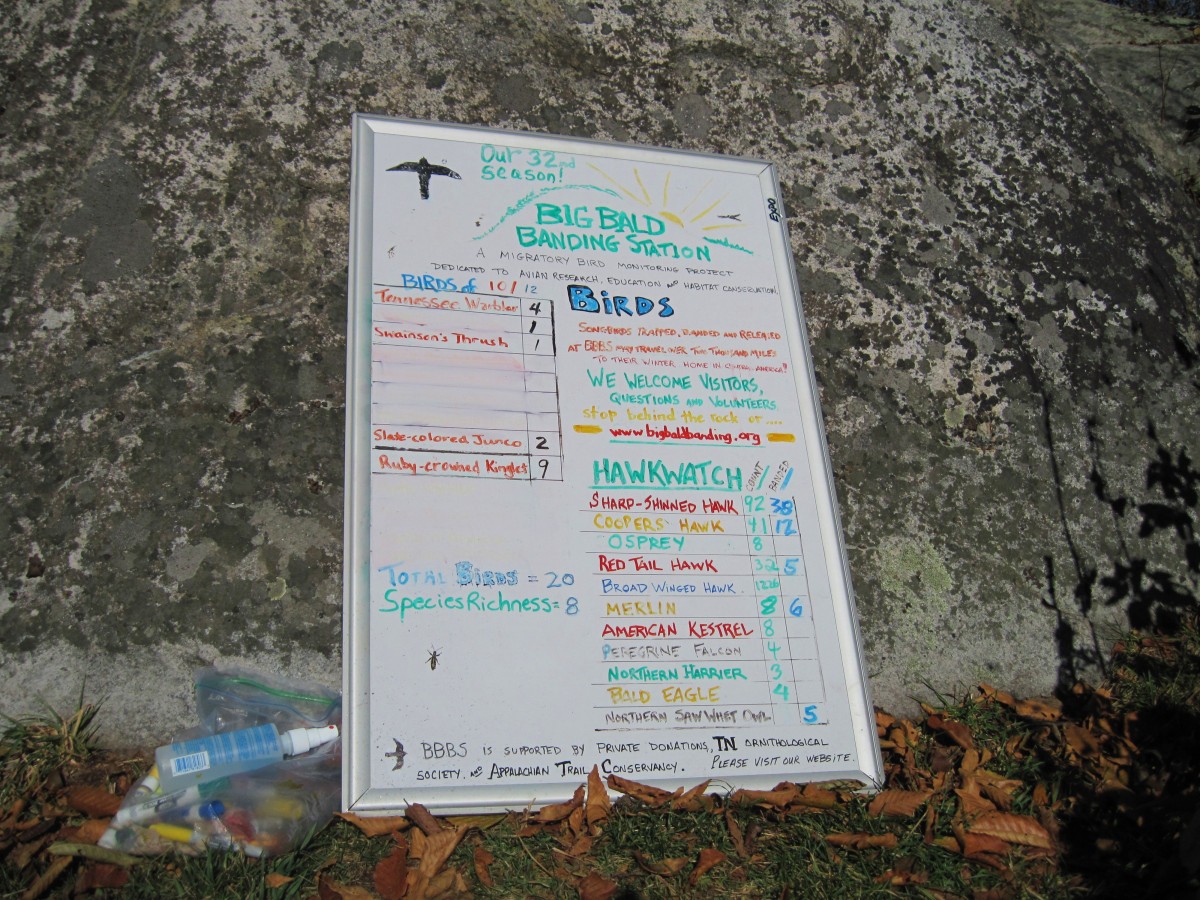 Our 32nd
season!
EXPO
BIG BALD
BANDING STATION
A MIGRATORY BIRD MONITORING PROJECT
DEDICATED TO AVIAN RESEARCH, EDUCATION AND HABITAT CONSERVATION.
BIRDS of 10/12
Tennessee Warbler 4
1
Swainson's Thrush 1
Slate-colored Junco 2
Ruby-crowned Kinglet 9
TOTAL BIRDS = 20
Species Richness = 8
BIRDS
SONGBIRDS TRAPPED, BANDED AND RELEASED
AT BBBS MAY TRAVEL OVER TWO THOUSAND MILES
TO THEIR WINTER HOME IN CENTRAL AMERICA!!
WE WELCOME VISITORS,
QUESTIONS AND VOLUNTEERS
stop behind the rock or ....
www.bigbaldbanding.org
HAWKWATCH COUNT BANDED
SHARP-SHINNED HAWK 92 38
COOPERS' HAWK 41 12
OSPREY 8
RED TAIL HAWK 32 5
BROAD WINGED HAWK 1226
MERLIN 8 6
AMERICAN KESTREL 8
PEREGRINE FALCON 4
NORTHERN HARRIER 3
BALD EAGLE 4
NORTHERN SAW WHET OWL 5
BBBS IS SUPPORTED BY PRIVATE DONATIONS, TN ORNITHOLOGICAL
SOCIETY, AND APPALACHIAN TRAIL CONSERVANCY. PLEASE VISIT OUR WEBSITE.